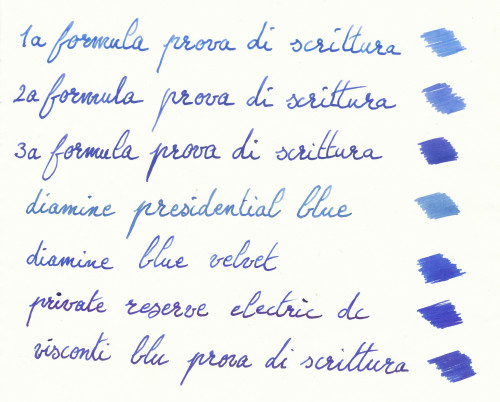 1a formula prova di scrittura
2a formula prova di scrittura
3a formula prova di scrittura
diamine presidential blue
diamine blue velvet
private reserve electric dc
visconti blu prova di scrittura